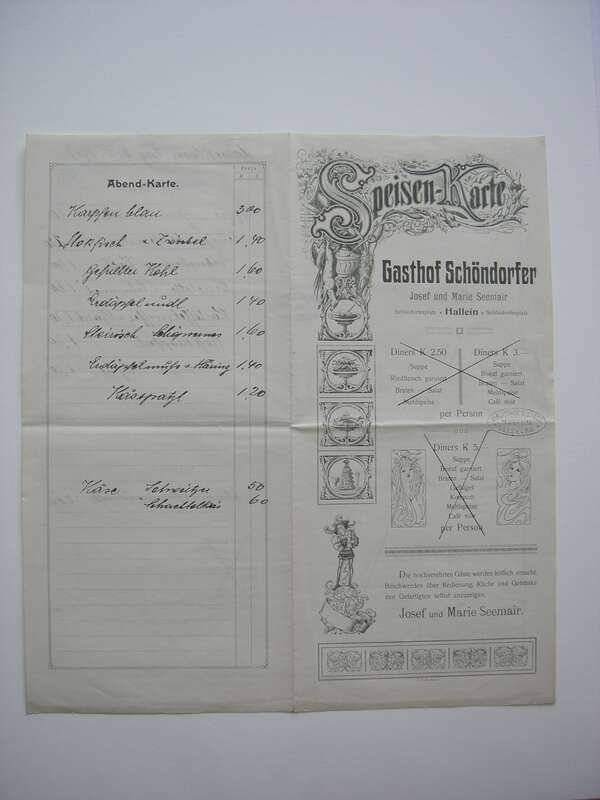 Abend-Karte.
Preis
K H
Karpfen blau 3.00
Stokfisch u Zwiebel 1,40
Gefüllter Kohl 1,60
Erdäpfelnudl 1 40
Steirisch 1,60
Erdäpfelmuß u Häring 1,40
1,20
Käse Schweitzer 50
Schachtelkäs 60
Speisen-Karte
Gasthof Schöndorfer
Josef und Marie Seemair
Schöndorferplatz Hallein Schöndorferplatz
Diners K 2.50
Suppe
Rindfleisch garniert
Braten — Salat
Mehlspeise
Diners K 3.—
Suppe
Boeuf garniert
Braten — Salat
Mehlspeise
Café noir
per Person
Diners K 5.—
Suppe
Boeuf garniert
Braten — Salat
Geflügel
Kompott
Mehlspeise
Café noir
per Person
Die hochverehrten Gäste werden höflich ersucht,
Beschwerden über Bedienung, Küche und Getränke
der Gefertigten selbst anzuzeigen.
Josef und Marie Seemair.